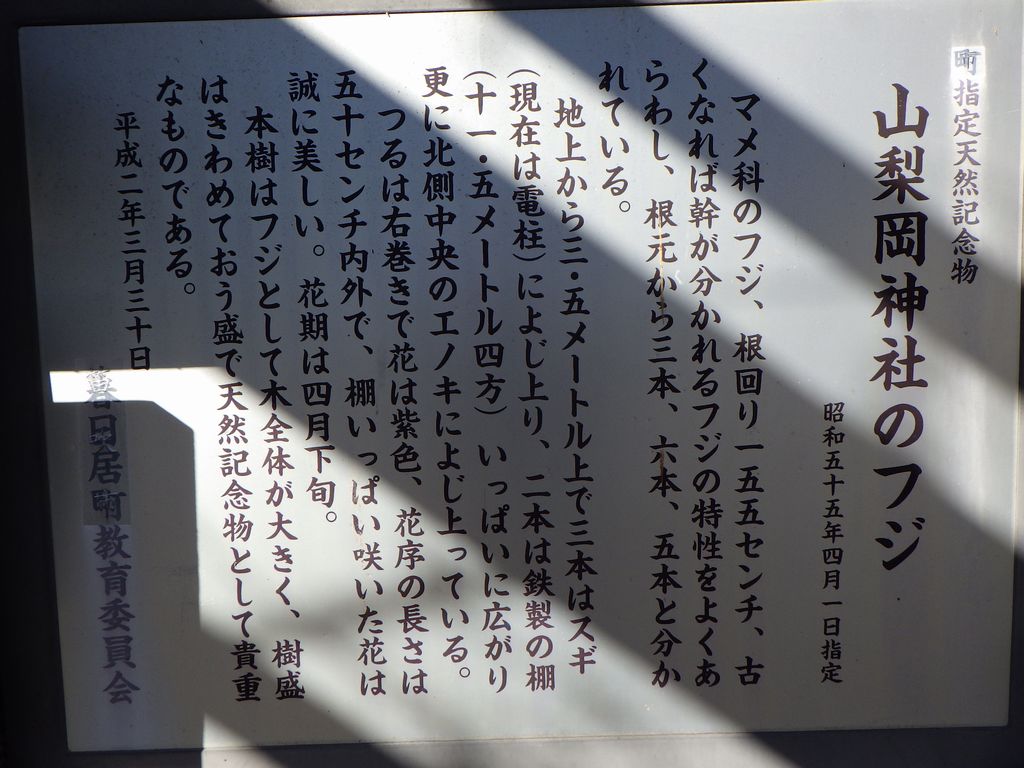 町指定天然記念物
山梨岡神社のフジ
昭和五十五年四月一日指定
マメ科のフジ、根回り一五五センチ、古
くなれば幹が分かれるフジの特性をよくあ
らわし、根元から三本、六本、五本と分か
れている。
地上から三・五メートル上で三本はスギ
(現在は電柱)によじ上り、二本は鉄製の棚
(十一・五メートル四方)いっぱいに広がり
更に北側中央のエノキによじ上っている。
つるは右巻きで花は紫色、花序の長さは
五十センチ内外で、棚いっぱい咲いた花は
誠に美しい。花期は四月下旬。
本樹はフジとして木全体が大きく、樹盛
はきわめておう盛で天然記念物として貴重
なものである。
平成二年三月三十日
春日居町教育委員会